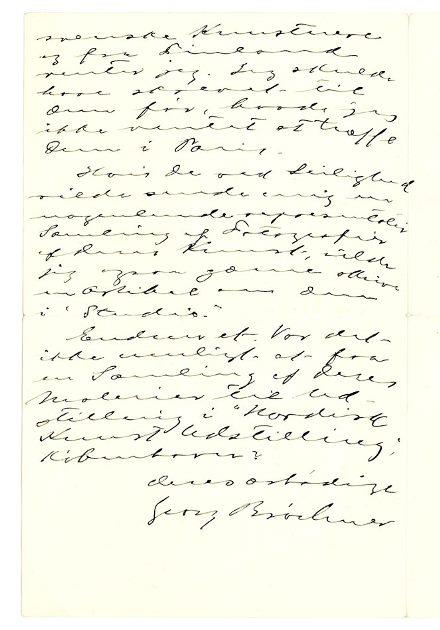 svenske Kunstnere
og fra Finland
venter jeg. Jeg skulde
have skrevet til
Dem før, havde jeg
ikke ventet at træffe
Dem i Paris.
Hvis De ved Leilighed
vilde sende mig en
nogenlunde repræsentativ
Samling af Fotografier
af deres Kunst, vilde
jeg ogsaa gærne skrive
en Artikel om Dem
i "Studio."
Endnu et. Var det
ikke muligt at faa
en Samling af deres
Malerier til Ud-
stilling i "Nordisk
Kunst Udstilling",
København?
deres ærbødige
Georg Bröchner